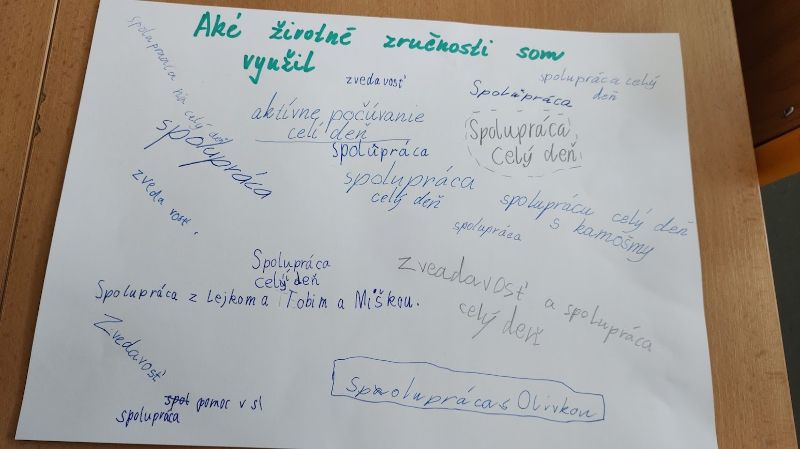 Aké životné zručnosti som
využil
spolupráca na celý deň
zvedavosť
spolupráca celý
deň
Spolupráca
aktívne počúvanie
celí deň
Spolupráca
Celý deň
spolupráca
spolupráca
spolupráca
celý deň
zveda vosť.
spoluprácu celý deň
s kamošmy
spolupráca
Spolupráca
celý deň
zveadavosť a spolupráca
celý deň
Spolupráca z Lejkom a Tobim a Miškou.
Zvedavosť
Spaolupráca s Olivkou
pomoc v sl
spolupráca